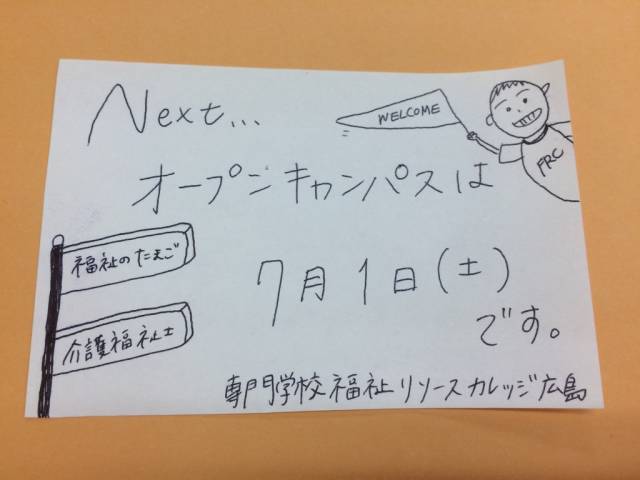 Next...
WELCOME
FRC
オープンキャンパスは
福祉のたまご
7月1日(土)
介護福祉士
です。
専門学校福祉リソースカレッジ広島